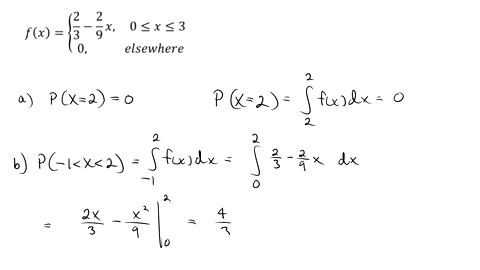 f(x) = { 2/3 − 2/9 x, 0 ≤ x ≤ 3
0, elsewhere
a) P(X=2) = 0 P(X=2) = ∫_2^2 f(x) dx = 0
b) P(-1<X<2) = ∫_{-1}^2 f(x) dx = ∫_0^2 2/3 − 2/9 x dx
= 2x/3 − x²/9 |_0^2 = 4/3